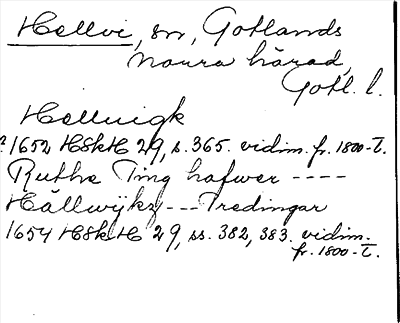 Hellvi, sn, Gotlands
norra härad,
Gotl. l.
Hellvigk
? 1652 HSkH 29, s. 365. vidim. fr. 1800-t.
Ruthe Ting hafwer ----
Hällwijkz --- Tredingar
1654 HSkH 29, ss. 382, 383. vidim.
fr. 1800-t.